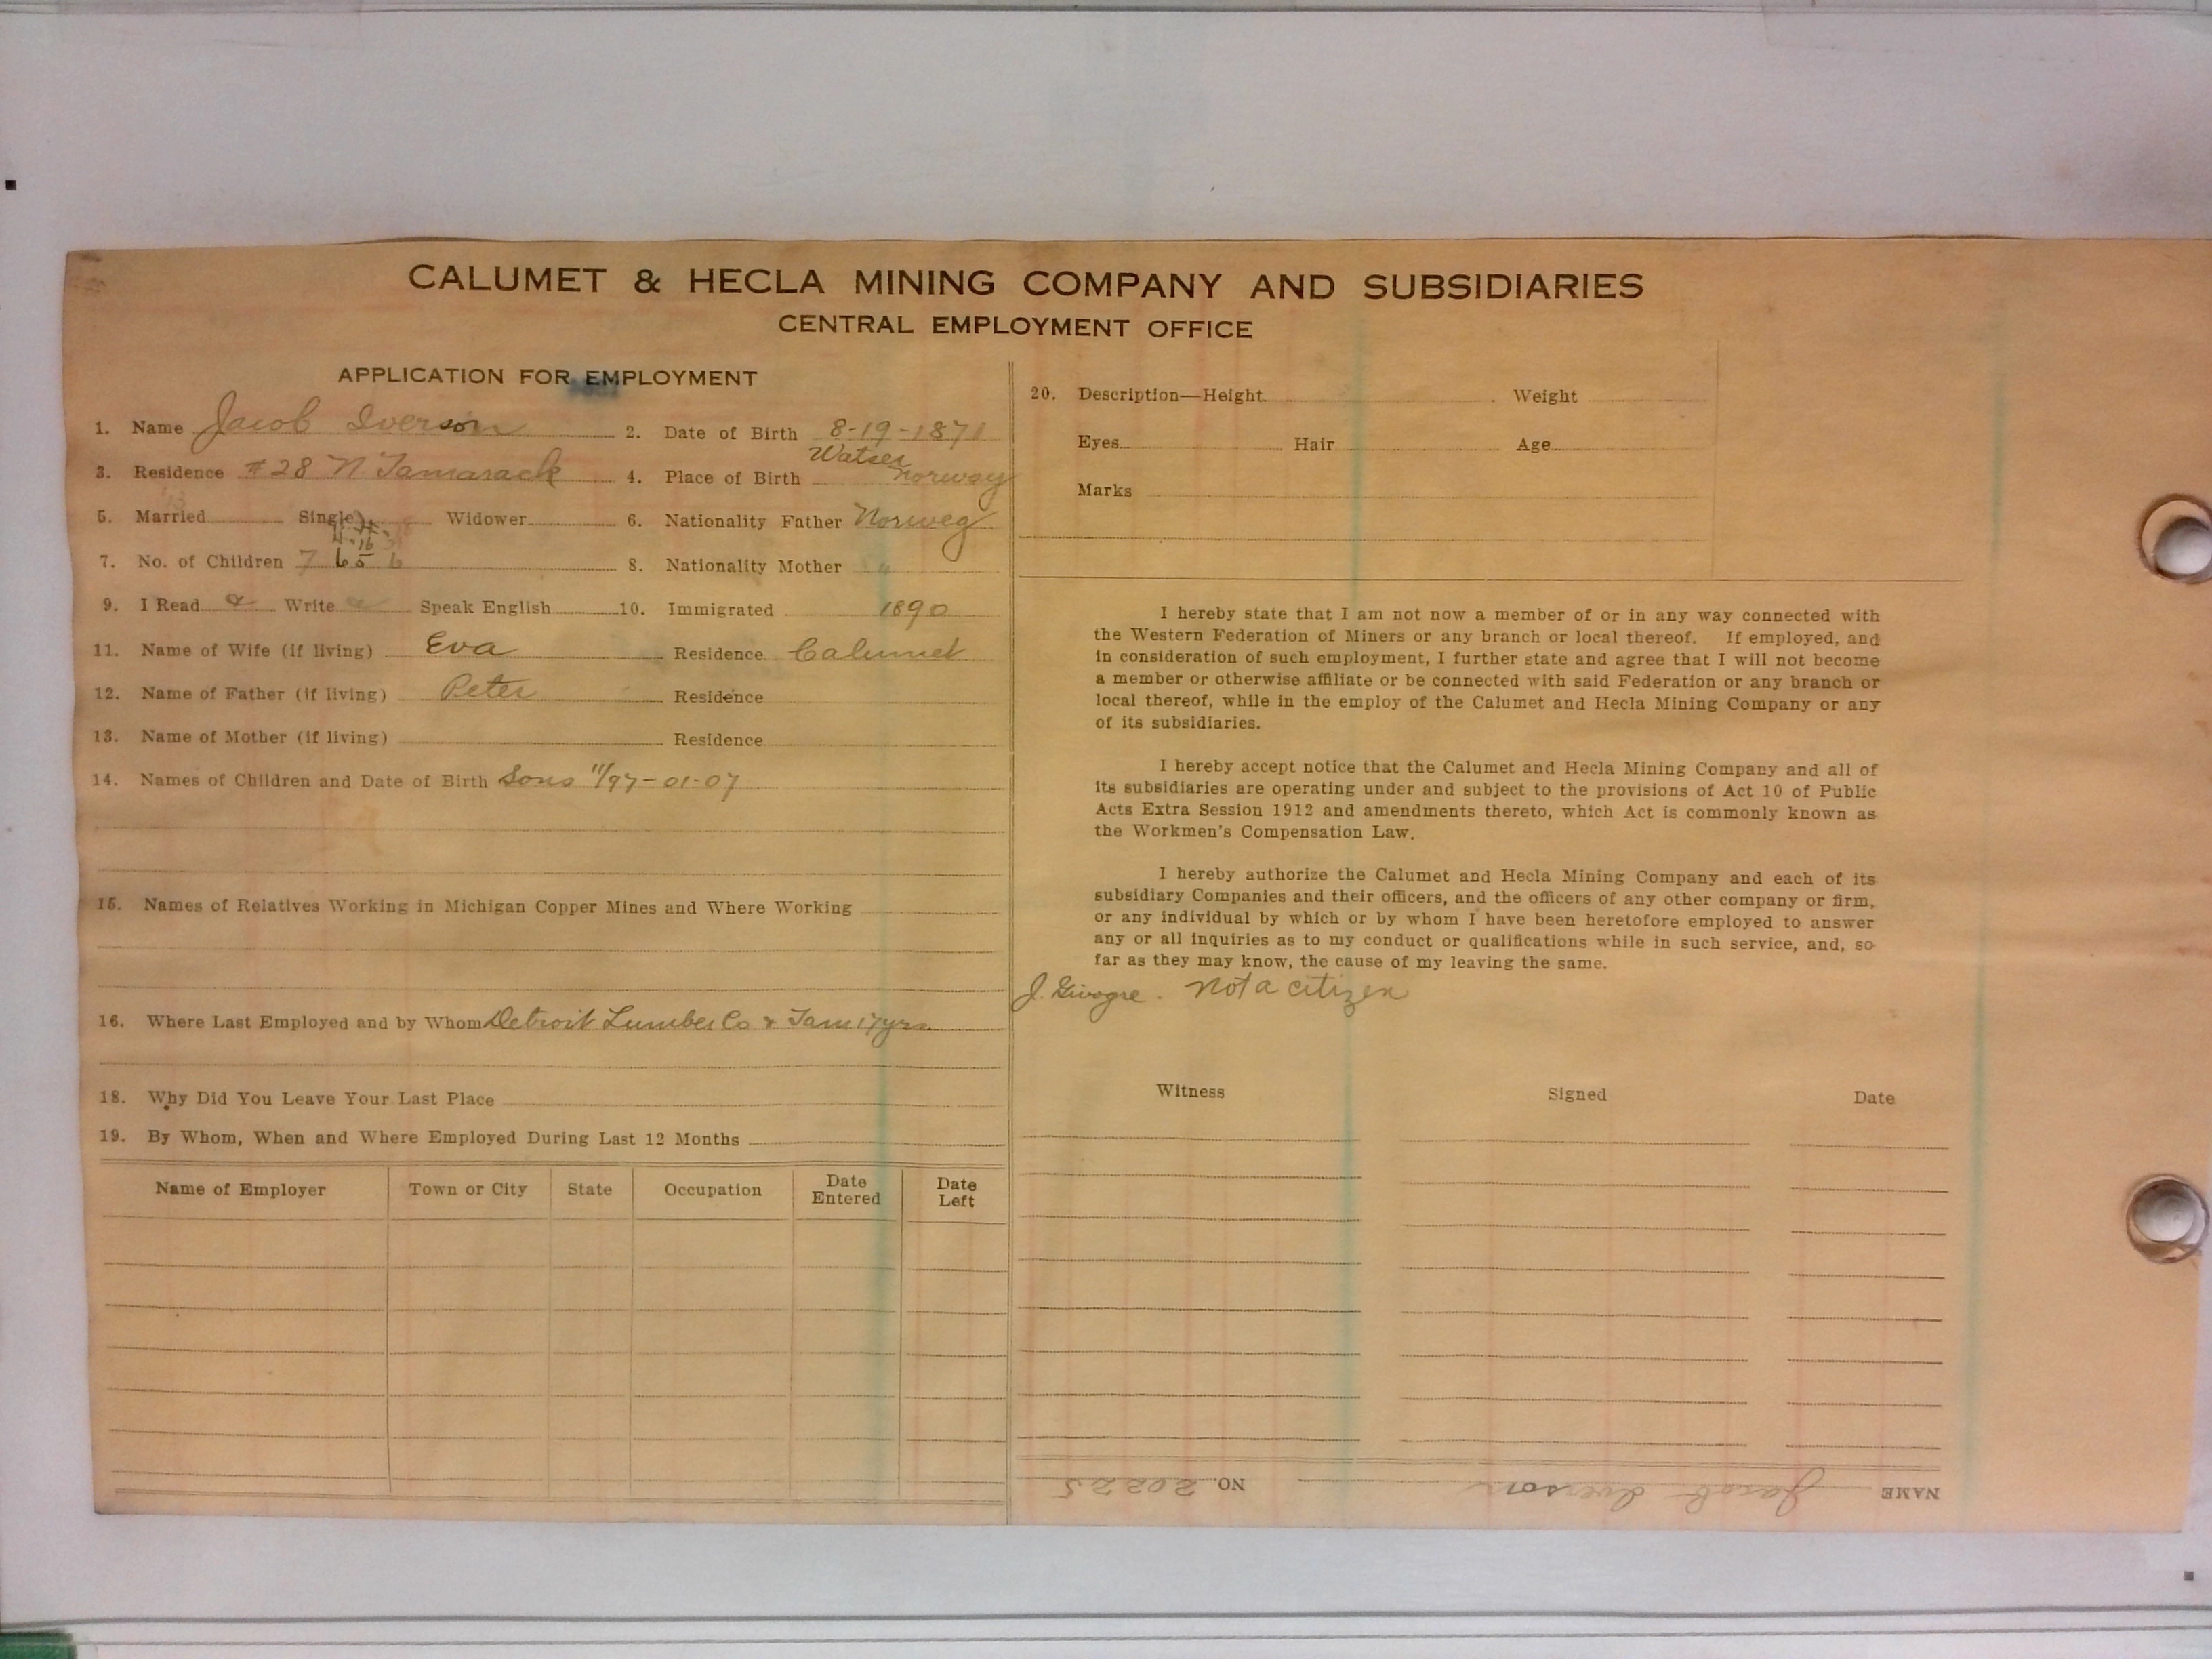 CALUMET & HECLA MINING COMPANY AND SUBSIDIARIES
CENTRAL EMPLOYMENT OFFICE
APPLICATION FOR EMPLOYMENT
1. Name Jacob Iverson 2. Date of Birth 8-19-1871
3. Residence #28 N Tamarack 4. Place of Birth Norway
5. Married Single Widower 6. Nationality Father Norweg
7. No. of Children 7 6 5 6 8. Nationality Mother "
9. I Read Write Speak English 10. Immigrated 1890
11. Name of Wife (if living) Eva Residence Calumet
12. Name of Father (if living) Peter Residence
13. Name of Mother (if living) Residence
14. Names of Children and Date of Birth Sons 11/97-01-07
15. Names of Relatives Working in Michigan Copper Mines and Where Working
16. Where Last Employed and by Whom Detroit Lumber Co & Tam 17 yrs
18. Why Did You Leave Your Last Place
19. By Whom, When and Where Employed During Last 12 Months
Name of Employer Town or City State Occupation Date Entered Date Left
20. Description—Height Weight
Eyes Hair Age
Marks
I hereby state that I am not now a member of or in any way connected with
the Western Federation of Miners or any branch or local thereof. If employed, and
in consideration of such employment, I further state and agree that I will not become
a member or otherwise affiliate or be connected with said Federation or any branch or
local thereof, while in the employ of the Calumet and Hecla Mining Company or any
of its subsidiaries.
I hereby accept notice that the Calumet and Hecla Mining Company and all of
its subsidiaries are operating under and subject to the provisions of Act 10 of Public
Acts Extra Session 1912 and amendments thereto, which Act is commonly known as
the Workmen's Compensation Law.
I hereby authorize the Calumet and Hecla Mining Company and each of its
subsidiary Companies and their officers, and the officers of any other company or firm,
or any individual by which or by whom I have been heretofore employed to answer
any or all inquiries as to my conduct or qualifications while in such service, and, so
far as they may know, the cause of my leaving the same.
J. Not a citizen
Witness Signed Date
NAME Jacob Iverson NO. 20225